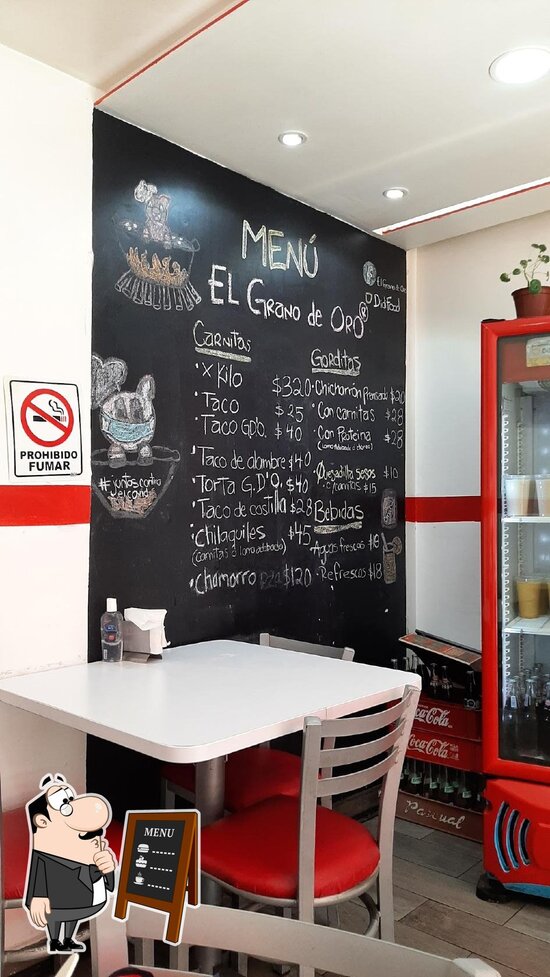 MENÚ
EL GRANO DE ORO
El Grano de Oro
Didi Food
CARNITAS
· X Kilo $320
· Taco $25
· Taco GDO. $40
· Taco de alambre $40
· Torta G.D'O. $40
· Taco de costilla $28
· Chilaquiles $45
(carnitas o lomo adobado)
· Chamorro PZA $120
Gorditas
· Chicharrón prensado $20
· Con carnitas $28
· Con Proteina $28
Quesadilla sesos $10
· C/carnitas $15
Bebidas
· Aguas frescas $18
· Refrescos $18
#juntos contra
el covid
PROHIBIDO
FUMAR
Coca-Cola
Coca-Cola
Pascual
MENU